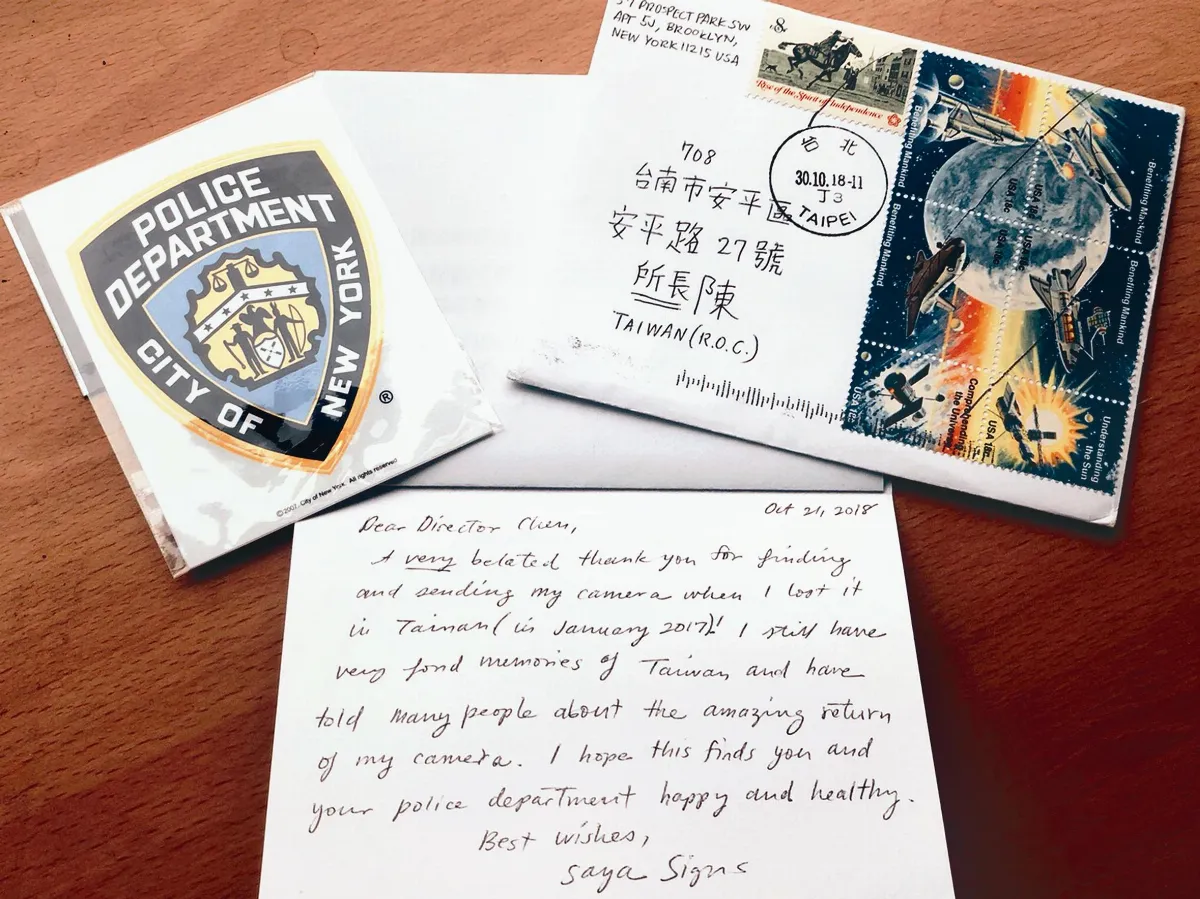 POLICE
DEPARTMENT
CITY OF
NEW YORK
®
©2007. City of New York. All rights reserved
PROSPECT PARK SW
APT 5J, BROOKLYN,
NEW YORK 11215 USA
8c
Rise of the Spirit of Independence
台北
30.10.18-11
J3
TAIPEI
708
台南市安平區
安平路 27號
所長陳
TAIWAN (R.O.C.)
Benefiting Mankind
Benefiting Mankind
Benefiting Mankind
Benefiting Mankind
USA 18c
USA 18c
USA 18c
USA 18c
Comprehending
the Universe
USA 18c
Understanding
the Sun
USA 18c
Oct 21, 2018
Dear Director Chen,
A very belated thank you for finding
and sending my camera when I lost it
in Tainan (in January 2017)! I still have
very fond memories of Taiwan and have
told many people about the amazing return
of my camera. I hope this finds you and
your police department happy and healthy.
Best wishes,
Saya Signs